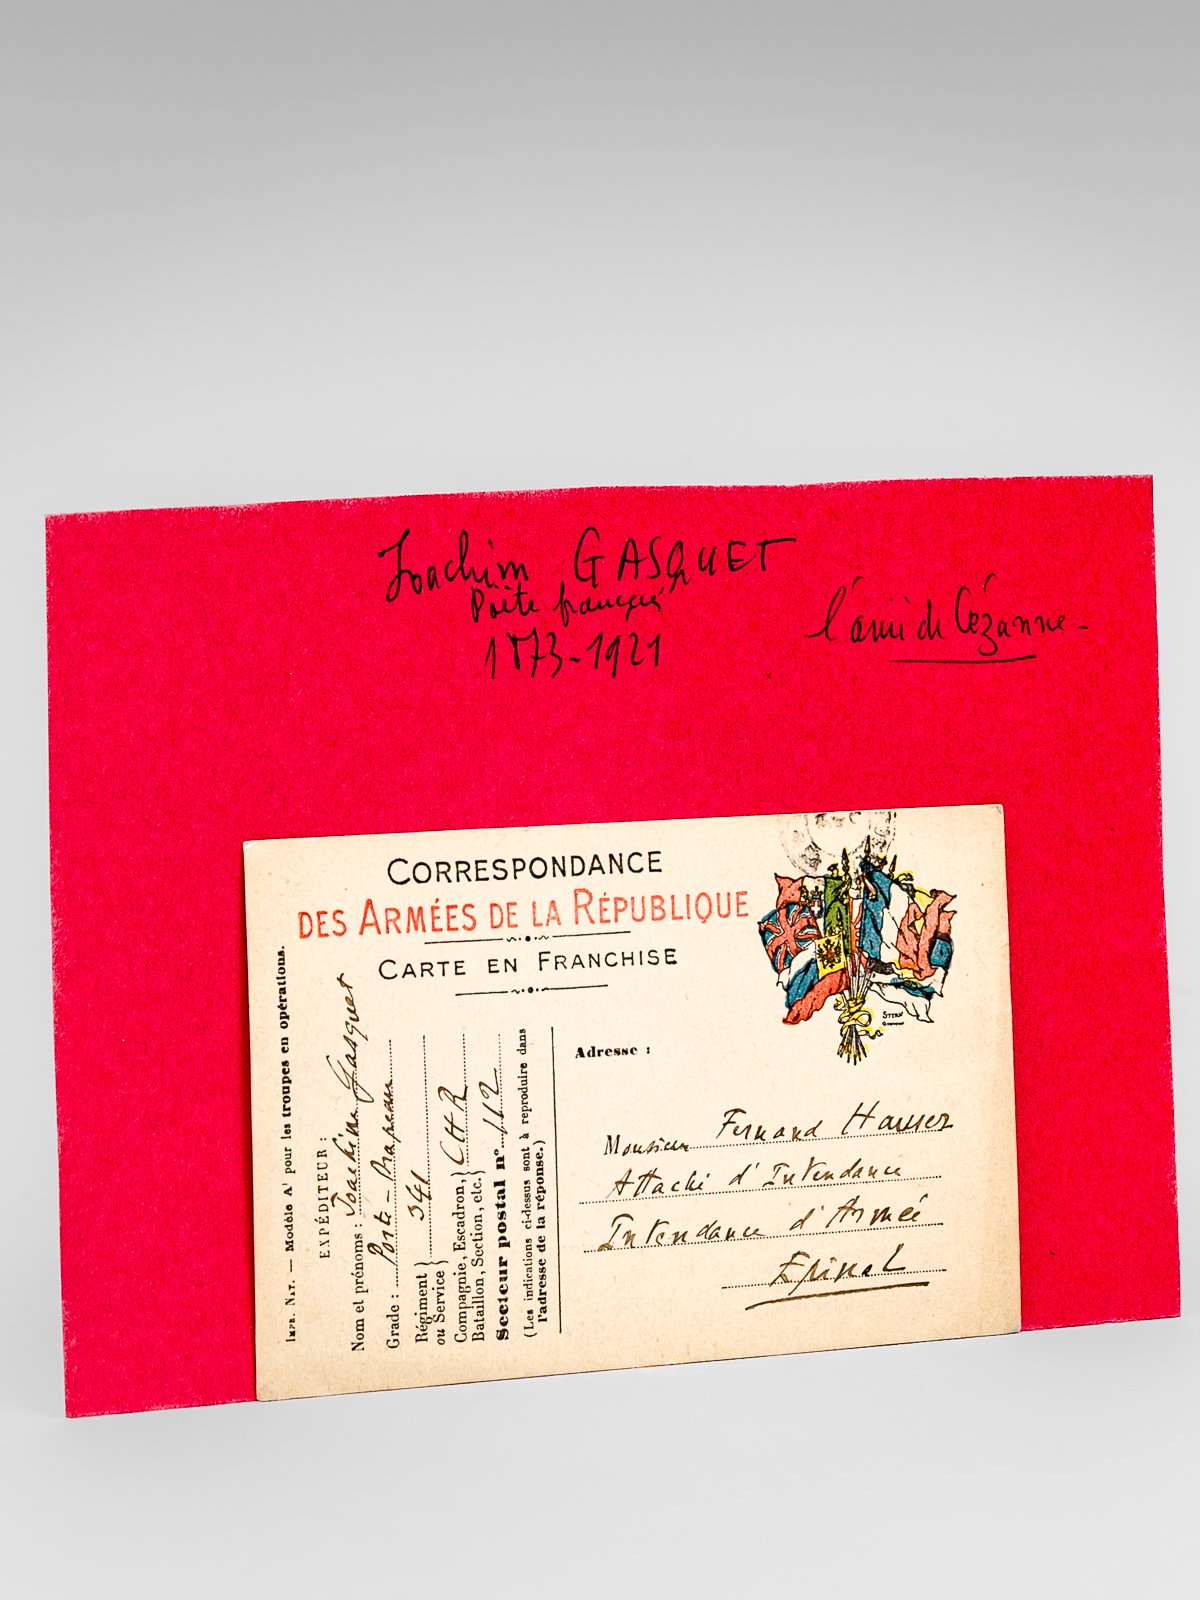 Joachim GASQUET
Poète français
1873-1921
l'ami de Cézanne-
CORRESPONDANCE
DES ARMÉES DE LA RÉPUBLIQUE
CARTE EN FRANCHISE
STERN
Adresse :
Monsieur Fernand Hauser
Attaché d'Intendance
Intendance d'Armée
Epinal
IMPR. NAT. — Modèle A¹ pour les troupes en opérations.
EXPÉDITEUR :
Nom et prénoms : Joachim Gasquet
Grade : Porte-Drapeau
Régiment
ou Service } 341
Compagnie, Escadron, } CHR
Bataillon, Section, etc. }
Secteur postal n° 112
(Les indications ci-dessus sont à reproduire dans
l'adresse de la réponse.)